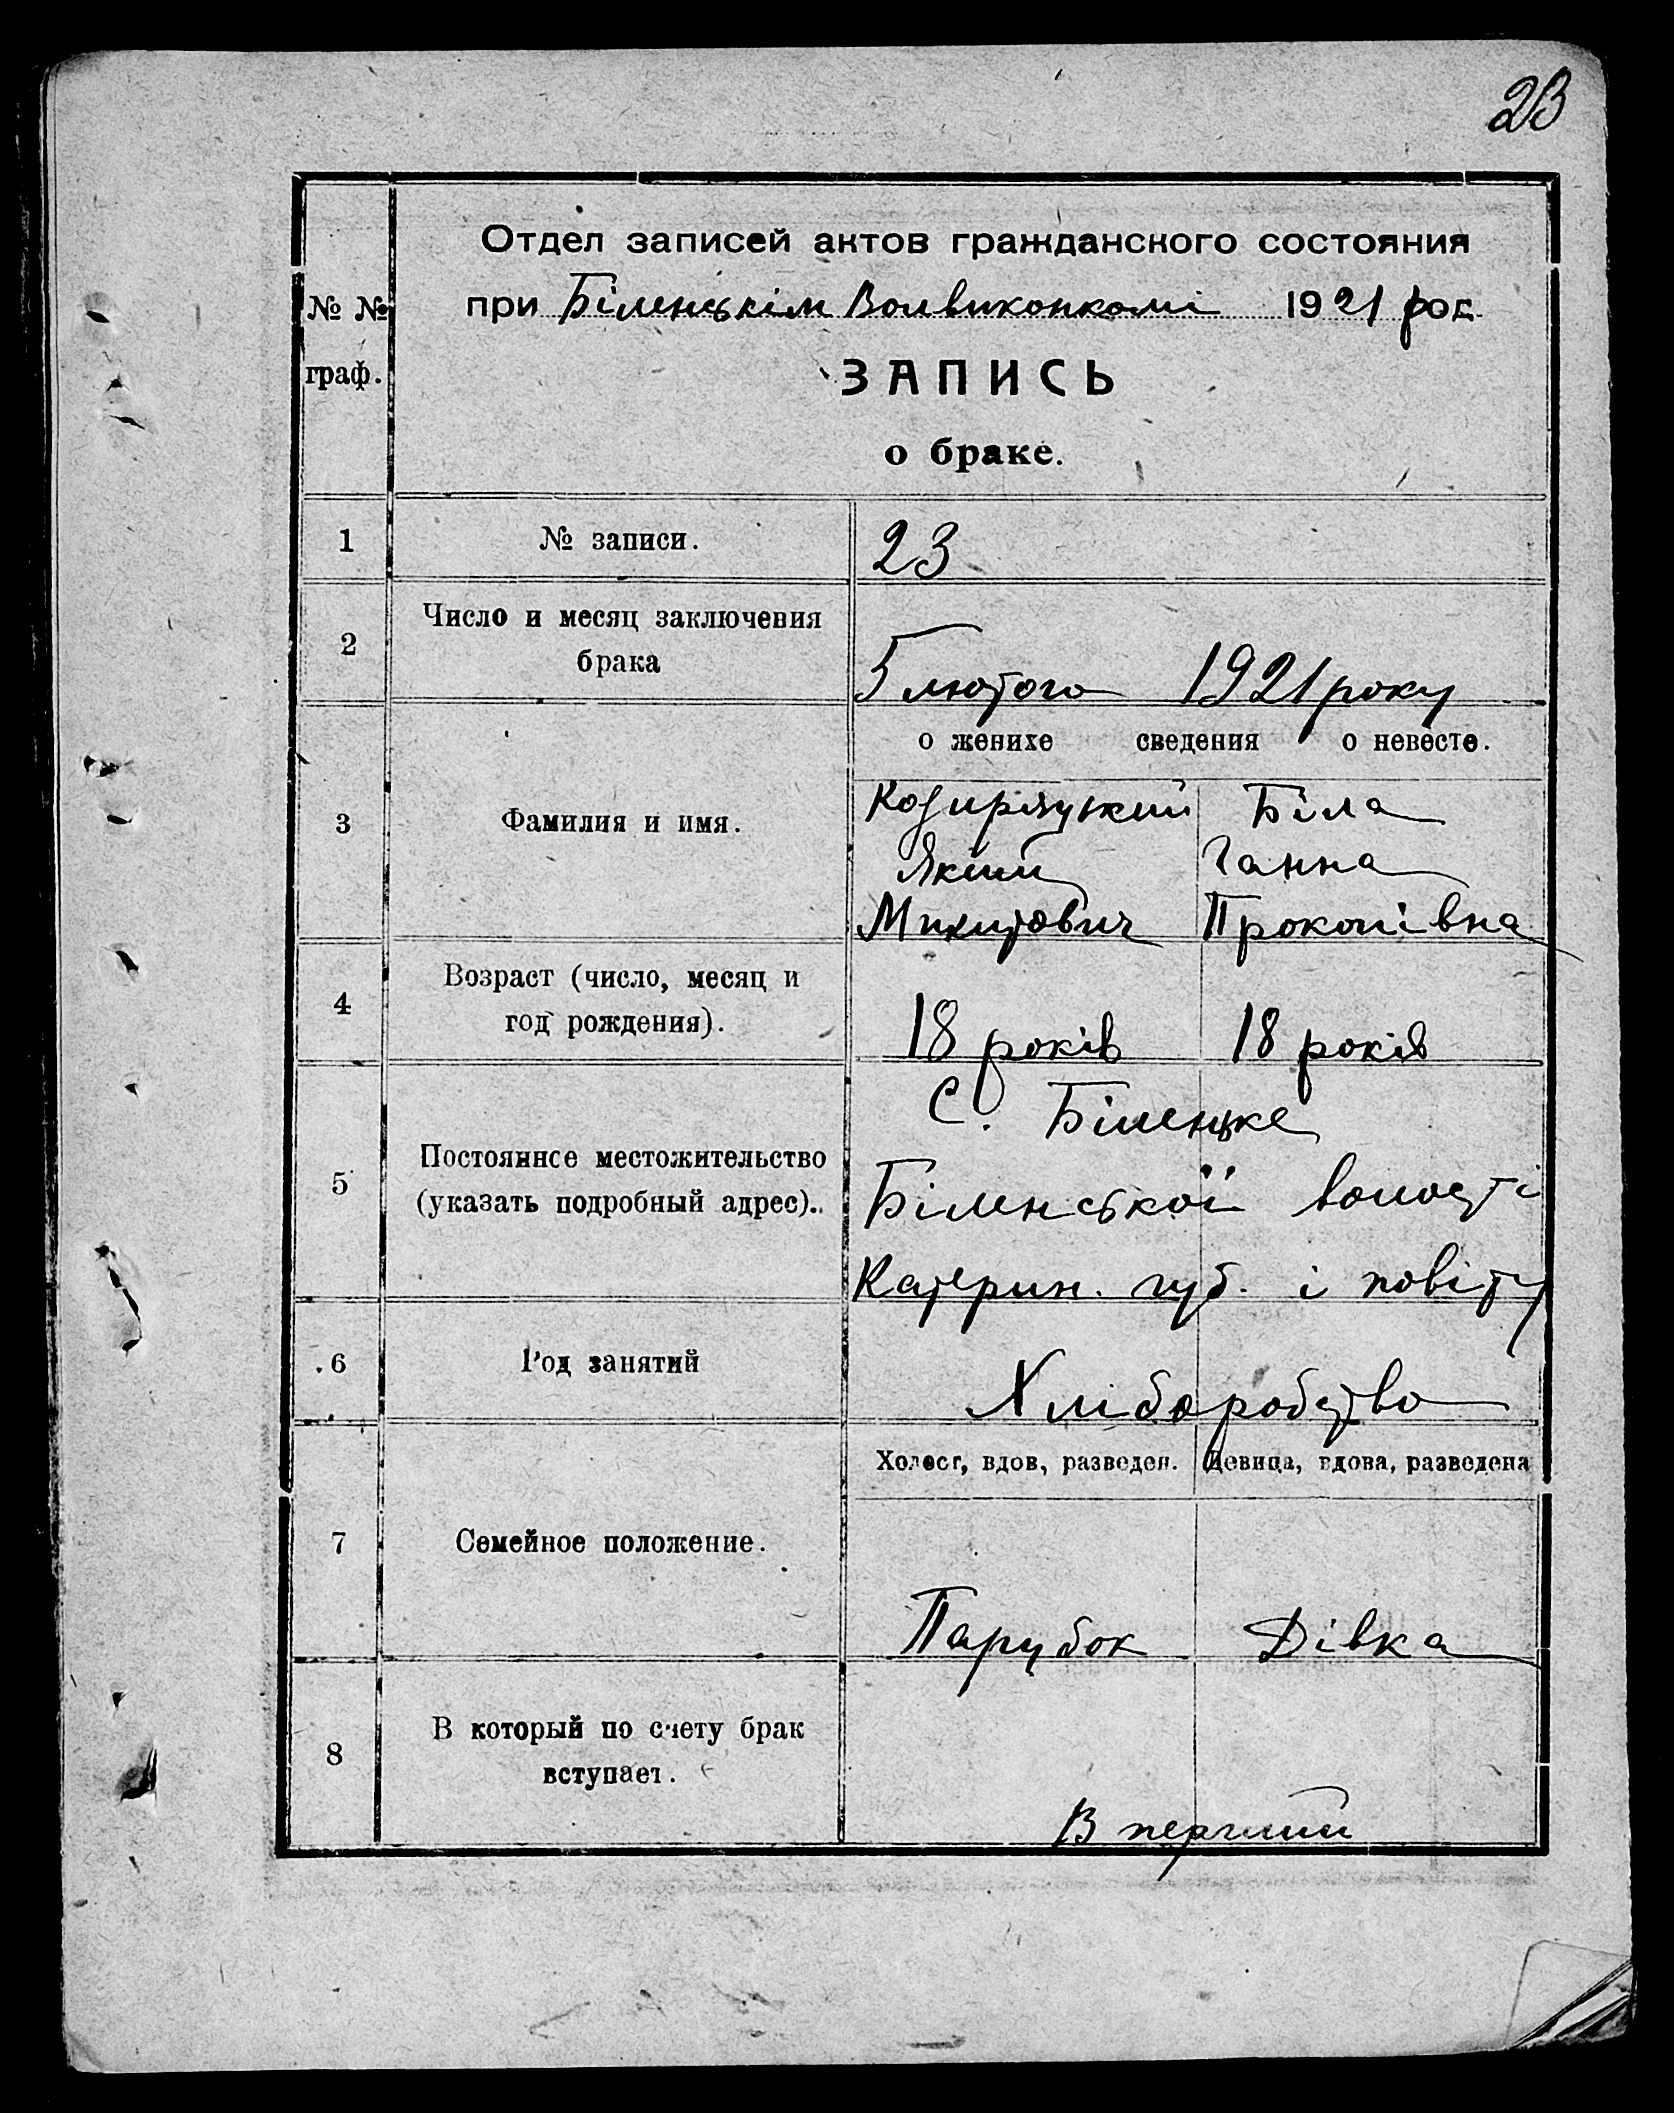 23
Отдел записей актов гражданского состояния
при Біленськім Волвиконкомі 1921 рос.
№ №
граф.
ЗАПИСЬ
о браке.
1 № записи. 23
2 Число и месяц заключения
брака
5 лютого 1921 року
о женихе сведения о невесте.
3 Фамилия и имя.
Біла
Яким Ганна
Микитович Прокопівна
4 Возраст (число, месяц и
год рождения).
18 років 18 років
5 Постоянное местожительство
(указать подробный адрес).
С. Біленьке
Біленської волості
Катерин. губ. і повіту
6 Род занятий
Хліборобство
Холост, вдов, разведен. Девица, вдова, разведена
7 Семейное положение.
Парубок Дівка
8 В который по счету брак
вступает.
В перший